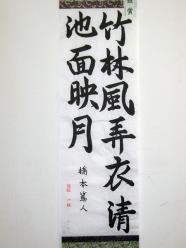 竹林風弄衣清
池面映月
橋本篤人